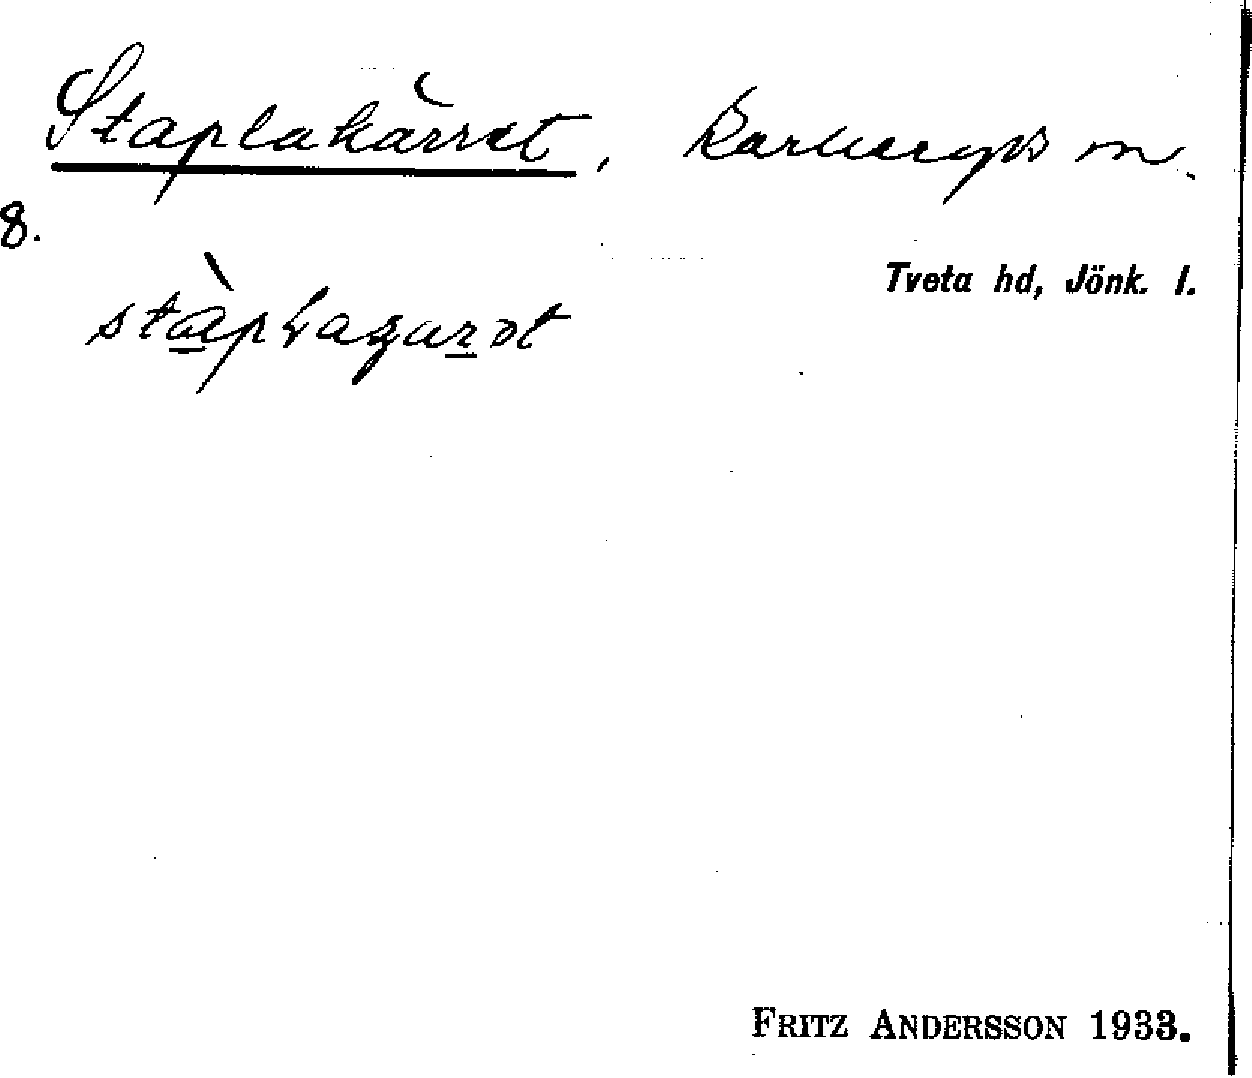 Staplakärret, Karlbergs m.
8.
Tveta hd, Jönk. l.
FRITZ ANDERSSON 1933.